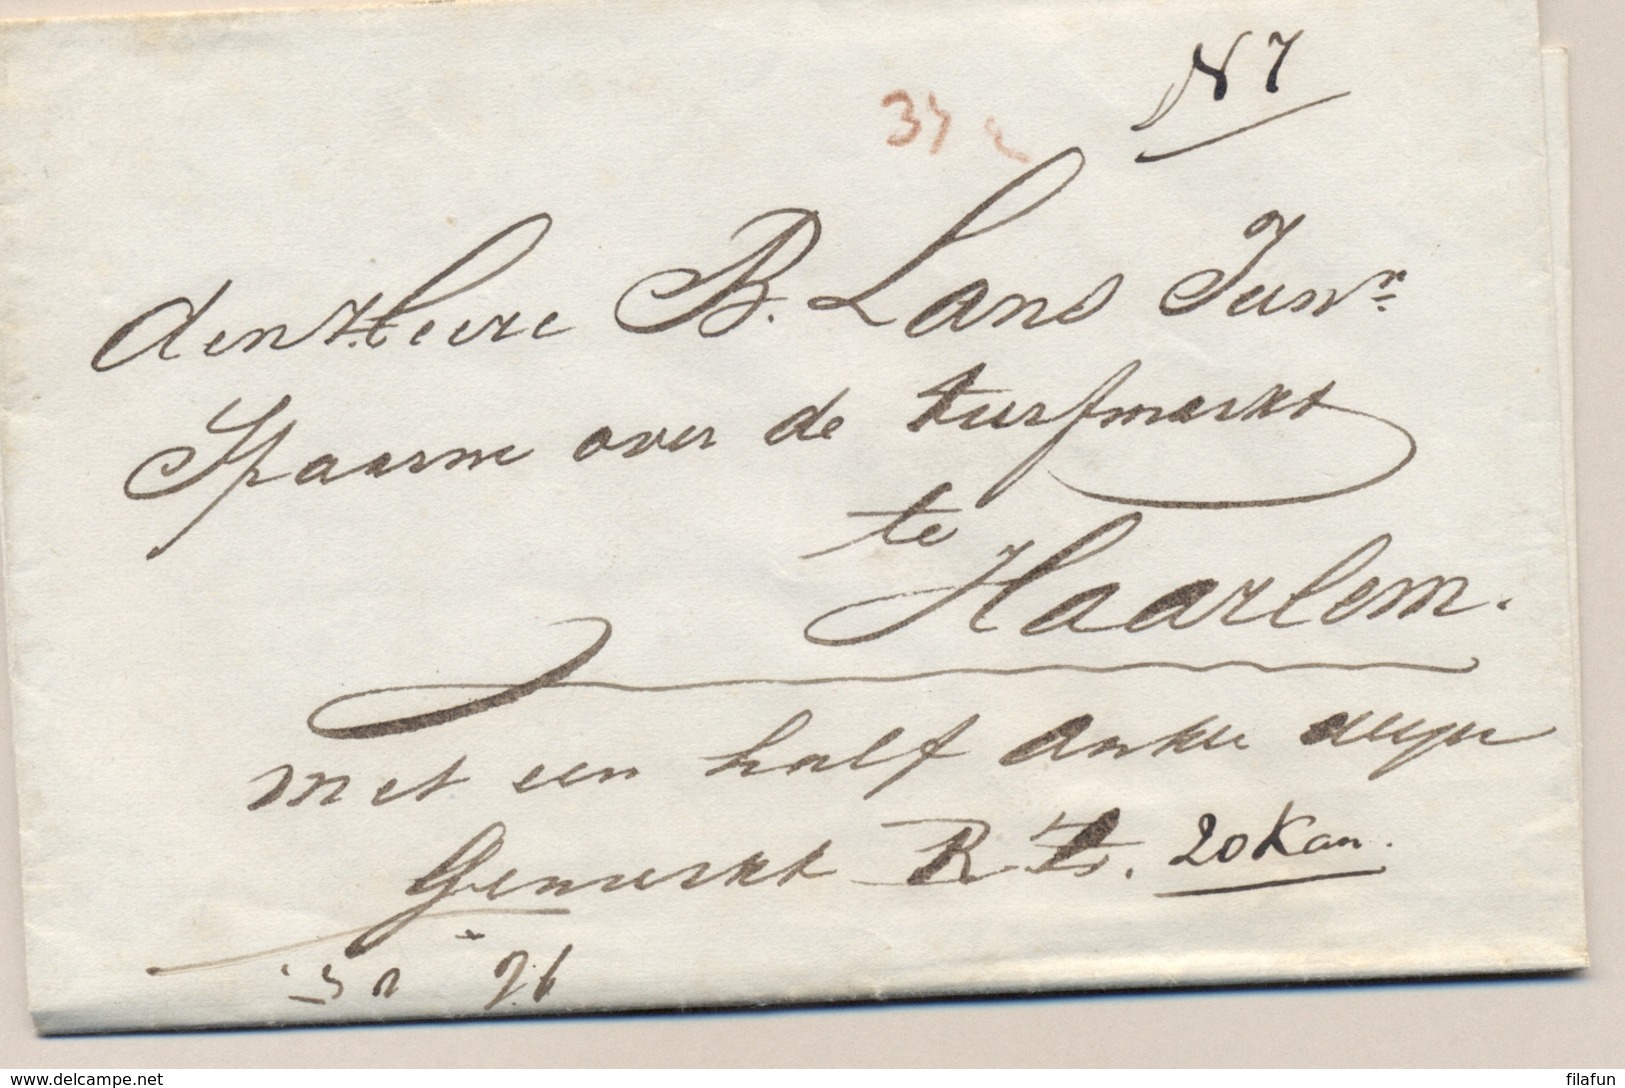 N 7
den Heere B. Lans Junr.
Spaarne over de turfmarkt
te
Haarlem.
met een half anker
Gemerkt 20 Kan.
www.delcampe.net
filafun